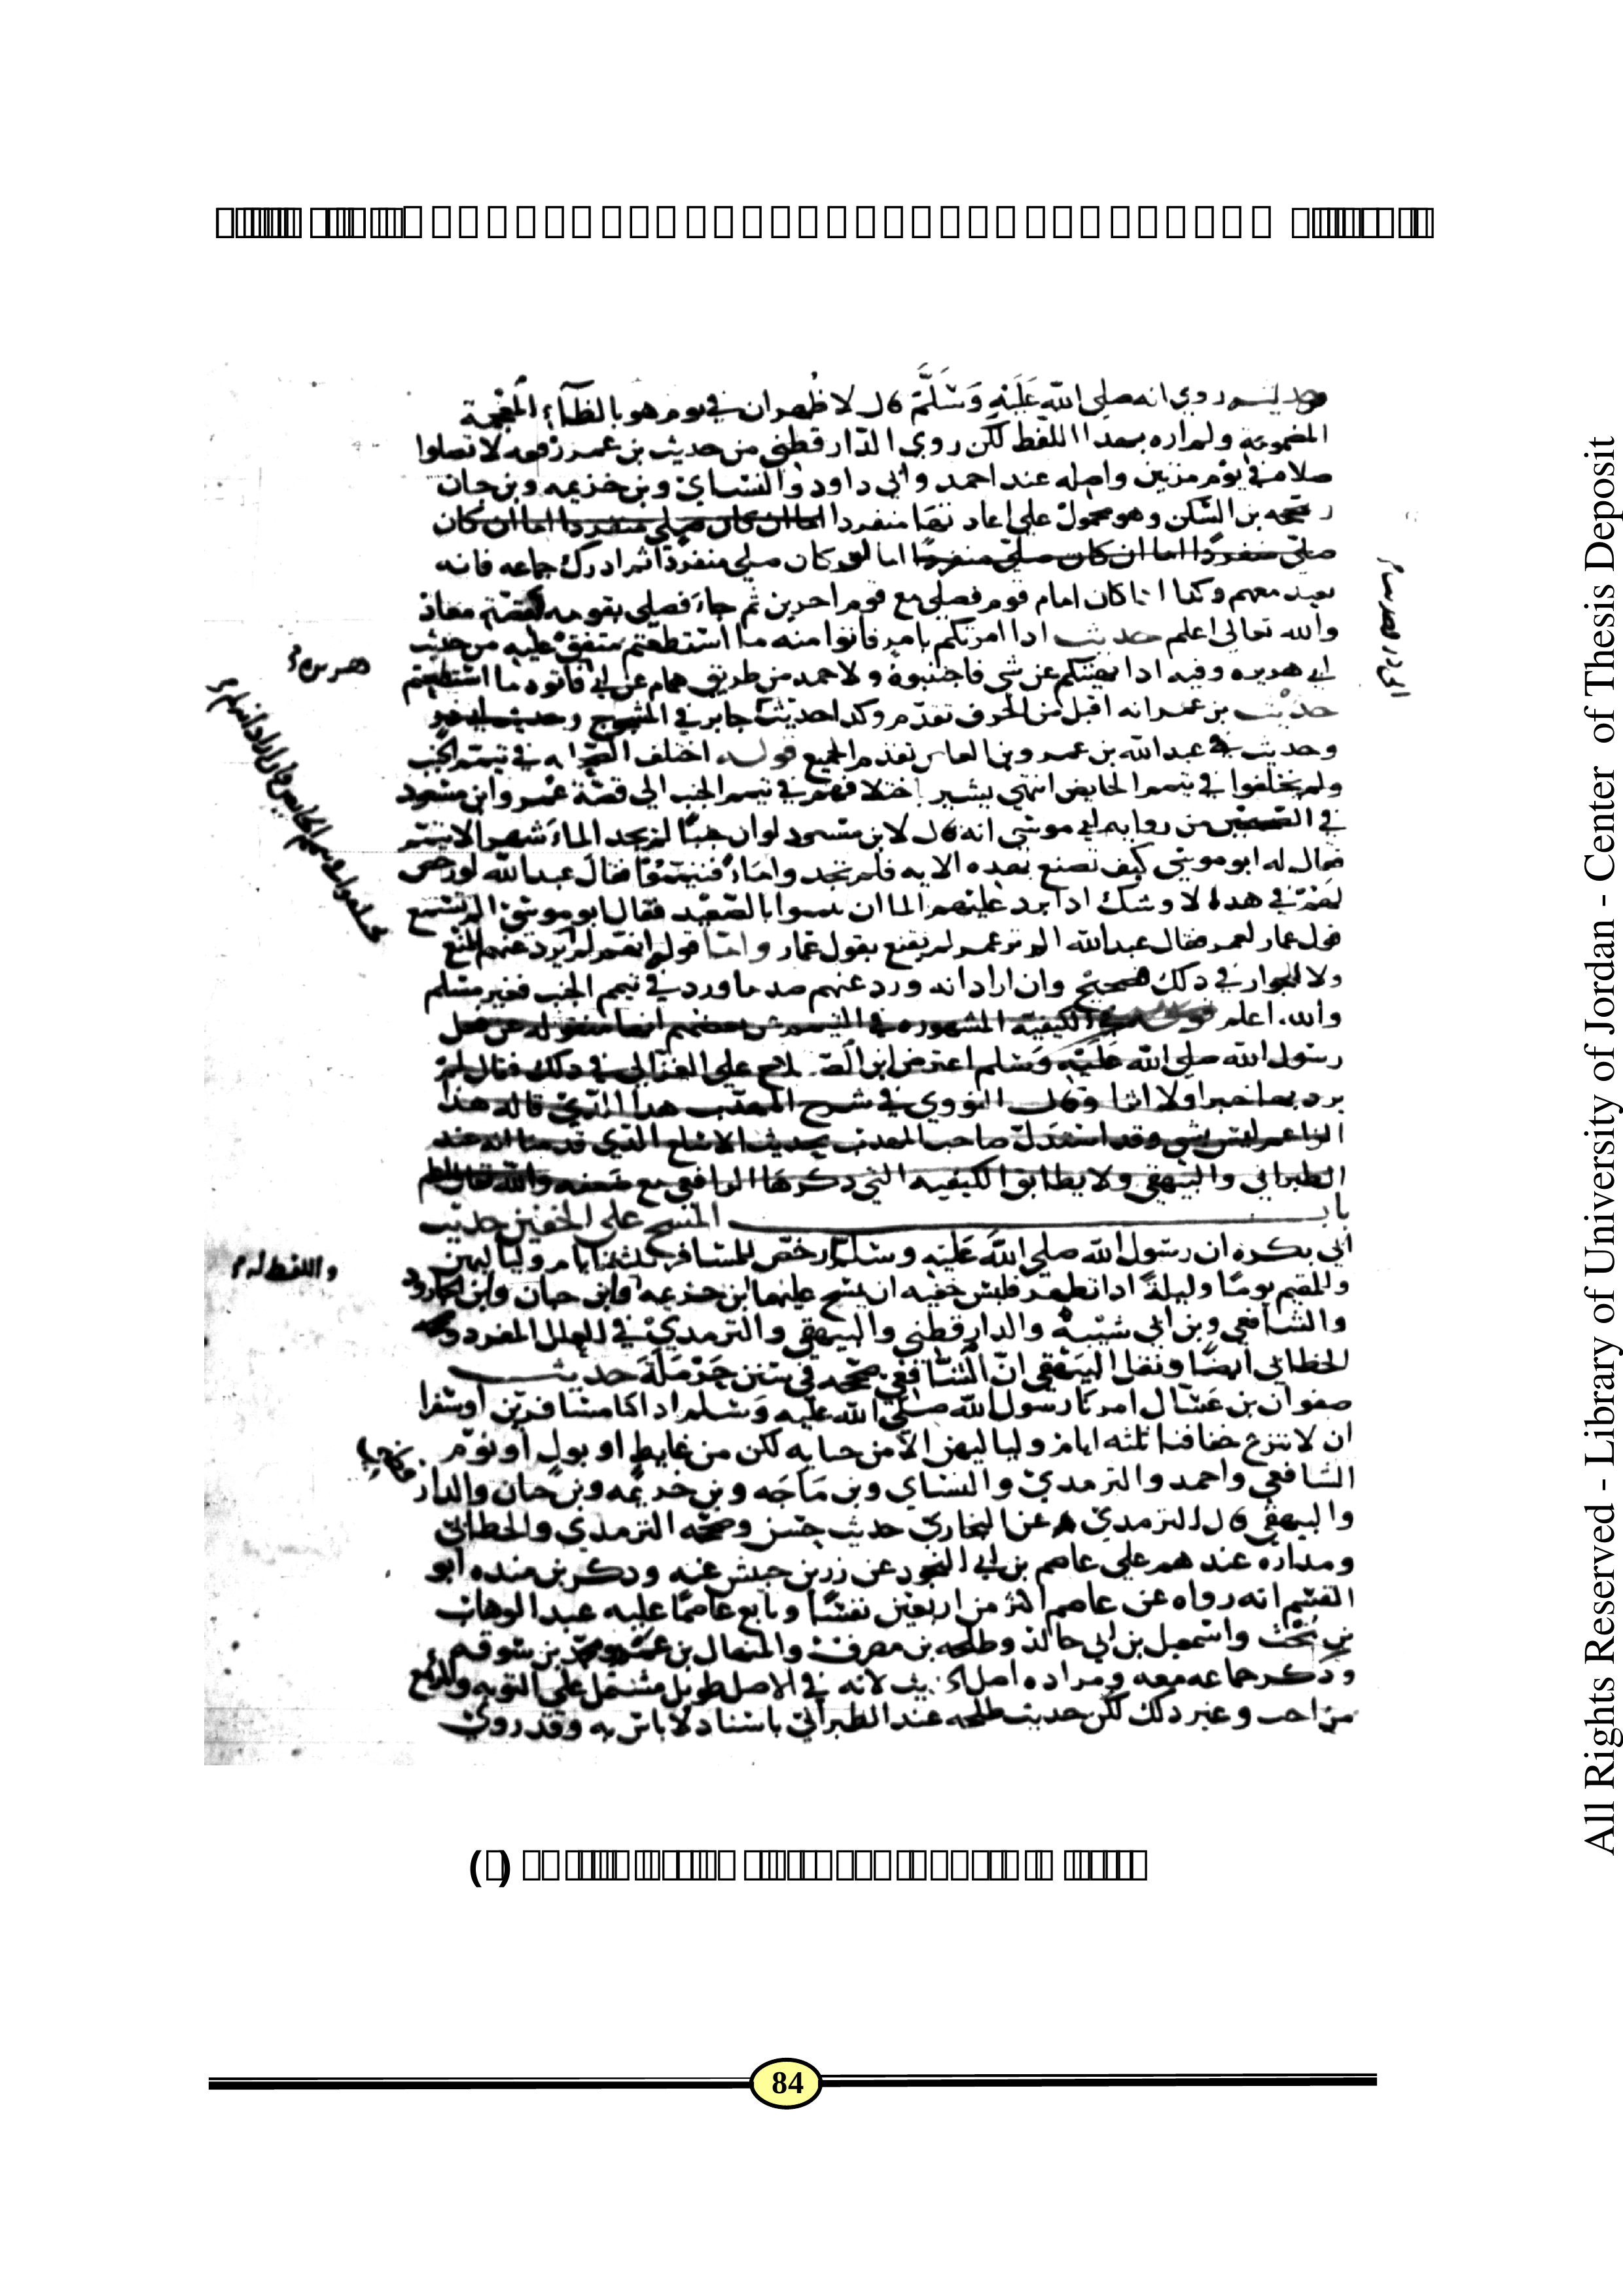 حديث روي انه صلى الله عَلَيْهِ وَسَلَّمَ قال لا ظهران في يوم هو بالظاء المعجمة
المضمومة ولم اره بهذا اللفظ لكن روي الدارقطني من حديث بن عمر رفعه لا تصلوا
صلاة في يوم مرتين واصله عند احمد وابي داود والنساي وبن خزيمه وبن حبان
وصححه بن السكن وهو محمول على اعادتها منفردا اما ان كان صلى منفردا اما ان كان
صلى منفردًا اما ان كان صلى منفردًا اما ان كان صلى منفردًا ثم ادرك جماعه فانه
يعيد معهم وكذا اذا كان امام قوم فصلى مع قوم اخرين ثم جاء فصلى بقومه كقصة معاذ
والله تعالى اعلم حديث اذا امرتكم بامر فاتوا منه ما استطعتم متفق عليه من حديث
ابي هريره وفيه اذا نهيتكم عن شي فاجتنبوه ولاحمد من طريق همام عن ابي فاتوه ما استطعتم
هريره
حديث بن عمر انه اقبل من الجرف تقدم وكذا حديث جابر في
وحديث عبد الله بن عمرو بن العاص تقدم الجميع قوله اختلف الصحابه في تيمم الجنب
ولم يختلفوا في تيمم الحايض انتهى يشير اختلافهم في تيمم الجنب الى قصة عمر وابن مسعود
في من روايه ابي موسى انه قال لابن مسعود لو ان جنبًا لم يجد الماء شهرا لا يتيمم
فقال له ابو موسى كيف تصنع بهذه الايه فلم تجدوا ماءً فتيمموا فقال عبد الله لو رخص
لهم في هذا لا وشك اذا برد عليهم الما ان بالصعيد فقال ابو موسى الم تسمع
قول عمار لعمر فقال عبد الله الم تر عمر لم يقنع بقول عمار واما قوله
ولا الجواز في ذلك فصحيح وان اراد انه ورد عنهم ما ورد في تيمم الجنب فغير مسلم
والله اعلم الكيفيه المشهوره في التيمم عن بعضهم انها منقوله عن فعل
رسول الله صلى الله عَلَيْهِ وَسَلم اعترض ابن الصلاح على الغزالي في ذلك فقال لم
يرد بها خبر ولا اثر وقال النووي في شرح المهذب هذا الذي قاله هذا
الزاعم ليس بشي وقد استدل صاحب المهذب بحديث الاسلع الذي قدمنا انه عند
الطبراني والبيهقي ولا يطابق الكيفيه التي ذكرها الرافعي مع ضعفه والله
باب المسح على الخفين حديث
ابي بكره ان رسول الله صلى الله عَلَيْه وسلم ارخص للمسافر ثلثة ايام ولياليهن
وللمقيم يومًا وليلةً اذا تطهر فلبس خفيه ان يمسح عليهما ابن خزيمه وابن حبان وابن الجارود
واللفظ له
والشافعي وبن ابي شيبة والدارقطني والبيهقي والترمذي في العلل المفرد وصححه
الخطابي ايضًا ونقل البيهقي ان الشافعي صححه في سنن حَرْمَلَةَ حديث
صفوان بن عسّال امرنا رسول الله صلى الله عليه وَسَلم اذا كنا مسافرين او سفرا
ان لا ننزع خفافنا ثلثه ايام ولياليهن الا من جنابه لكن من غايط او بول او نوم
الشافعي واحمد والترمذي والنساي وبن مَاجَه وبن خزيمه وبن حبان والدار
والبيهقي قال الترمذي عن البخاري حديث حسن وصححه الترمذي والخطابي
ومداره عندهم على عاصم بن ابي النجود عن زر بن حبيش عنه وذكر بن منده ابو
القسم انه رواه عن عاصم اكثر من اربعين نفسًا وتابع عاصمًا عليه عبد الوهاب
بن بُخْت واسمعيل بن ابي خالد وطلحه بن مصرف والمنهال بن عمرو ومحمد بن سوقه
وذكر جماعه معه ومراده اصل الحديث لانه في الاصل طويل مشتمل على التوبه والمرء مع
من احب وغير ذلك لكن حديث طلحه عند الطبراني باسناد لا باس به وقد روي
84
All Rights Reserved - Library of University of Jordan - Center of Thesis Deposit